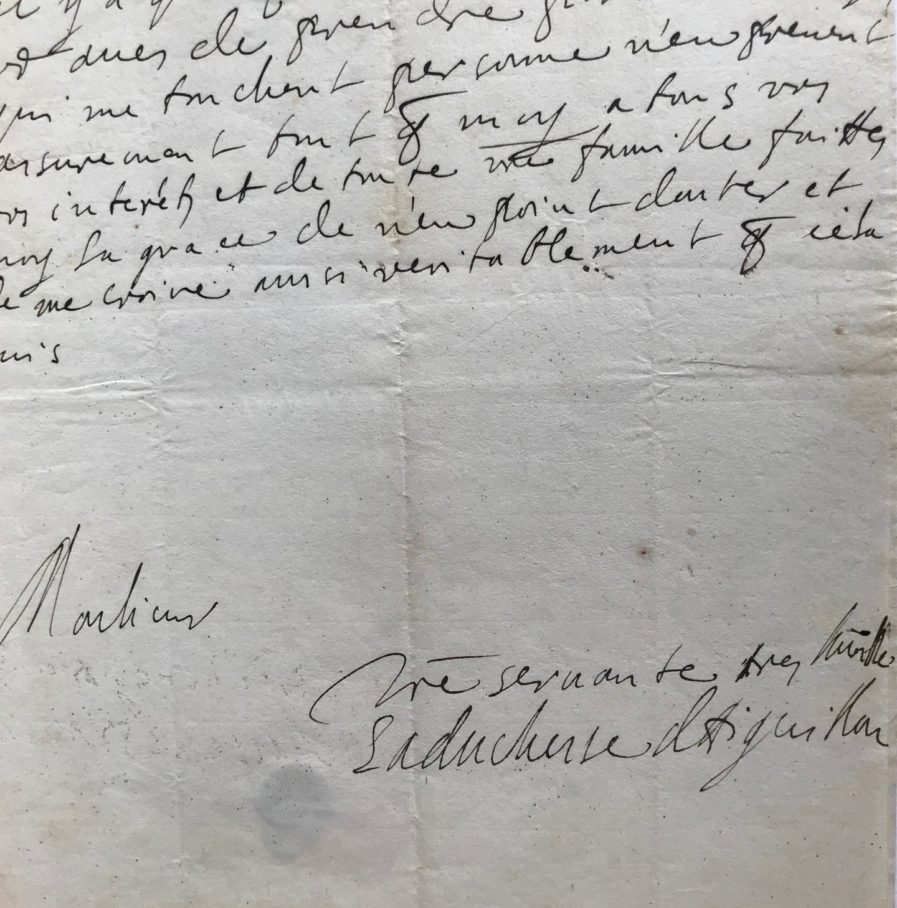 il y a
dues de prendre
qui me touchent personne n'en prenent
assurement tout q̄ moy a tous vos
vos interéts et de toute vr̄e famille faittes
moy la grace de n'en point douter et
de me croire aussi veritablement q̄ cela
suis
Monsieur
Vr̄e seruante tres humble
La duchesse d'Aiguillon